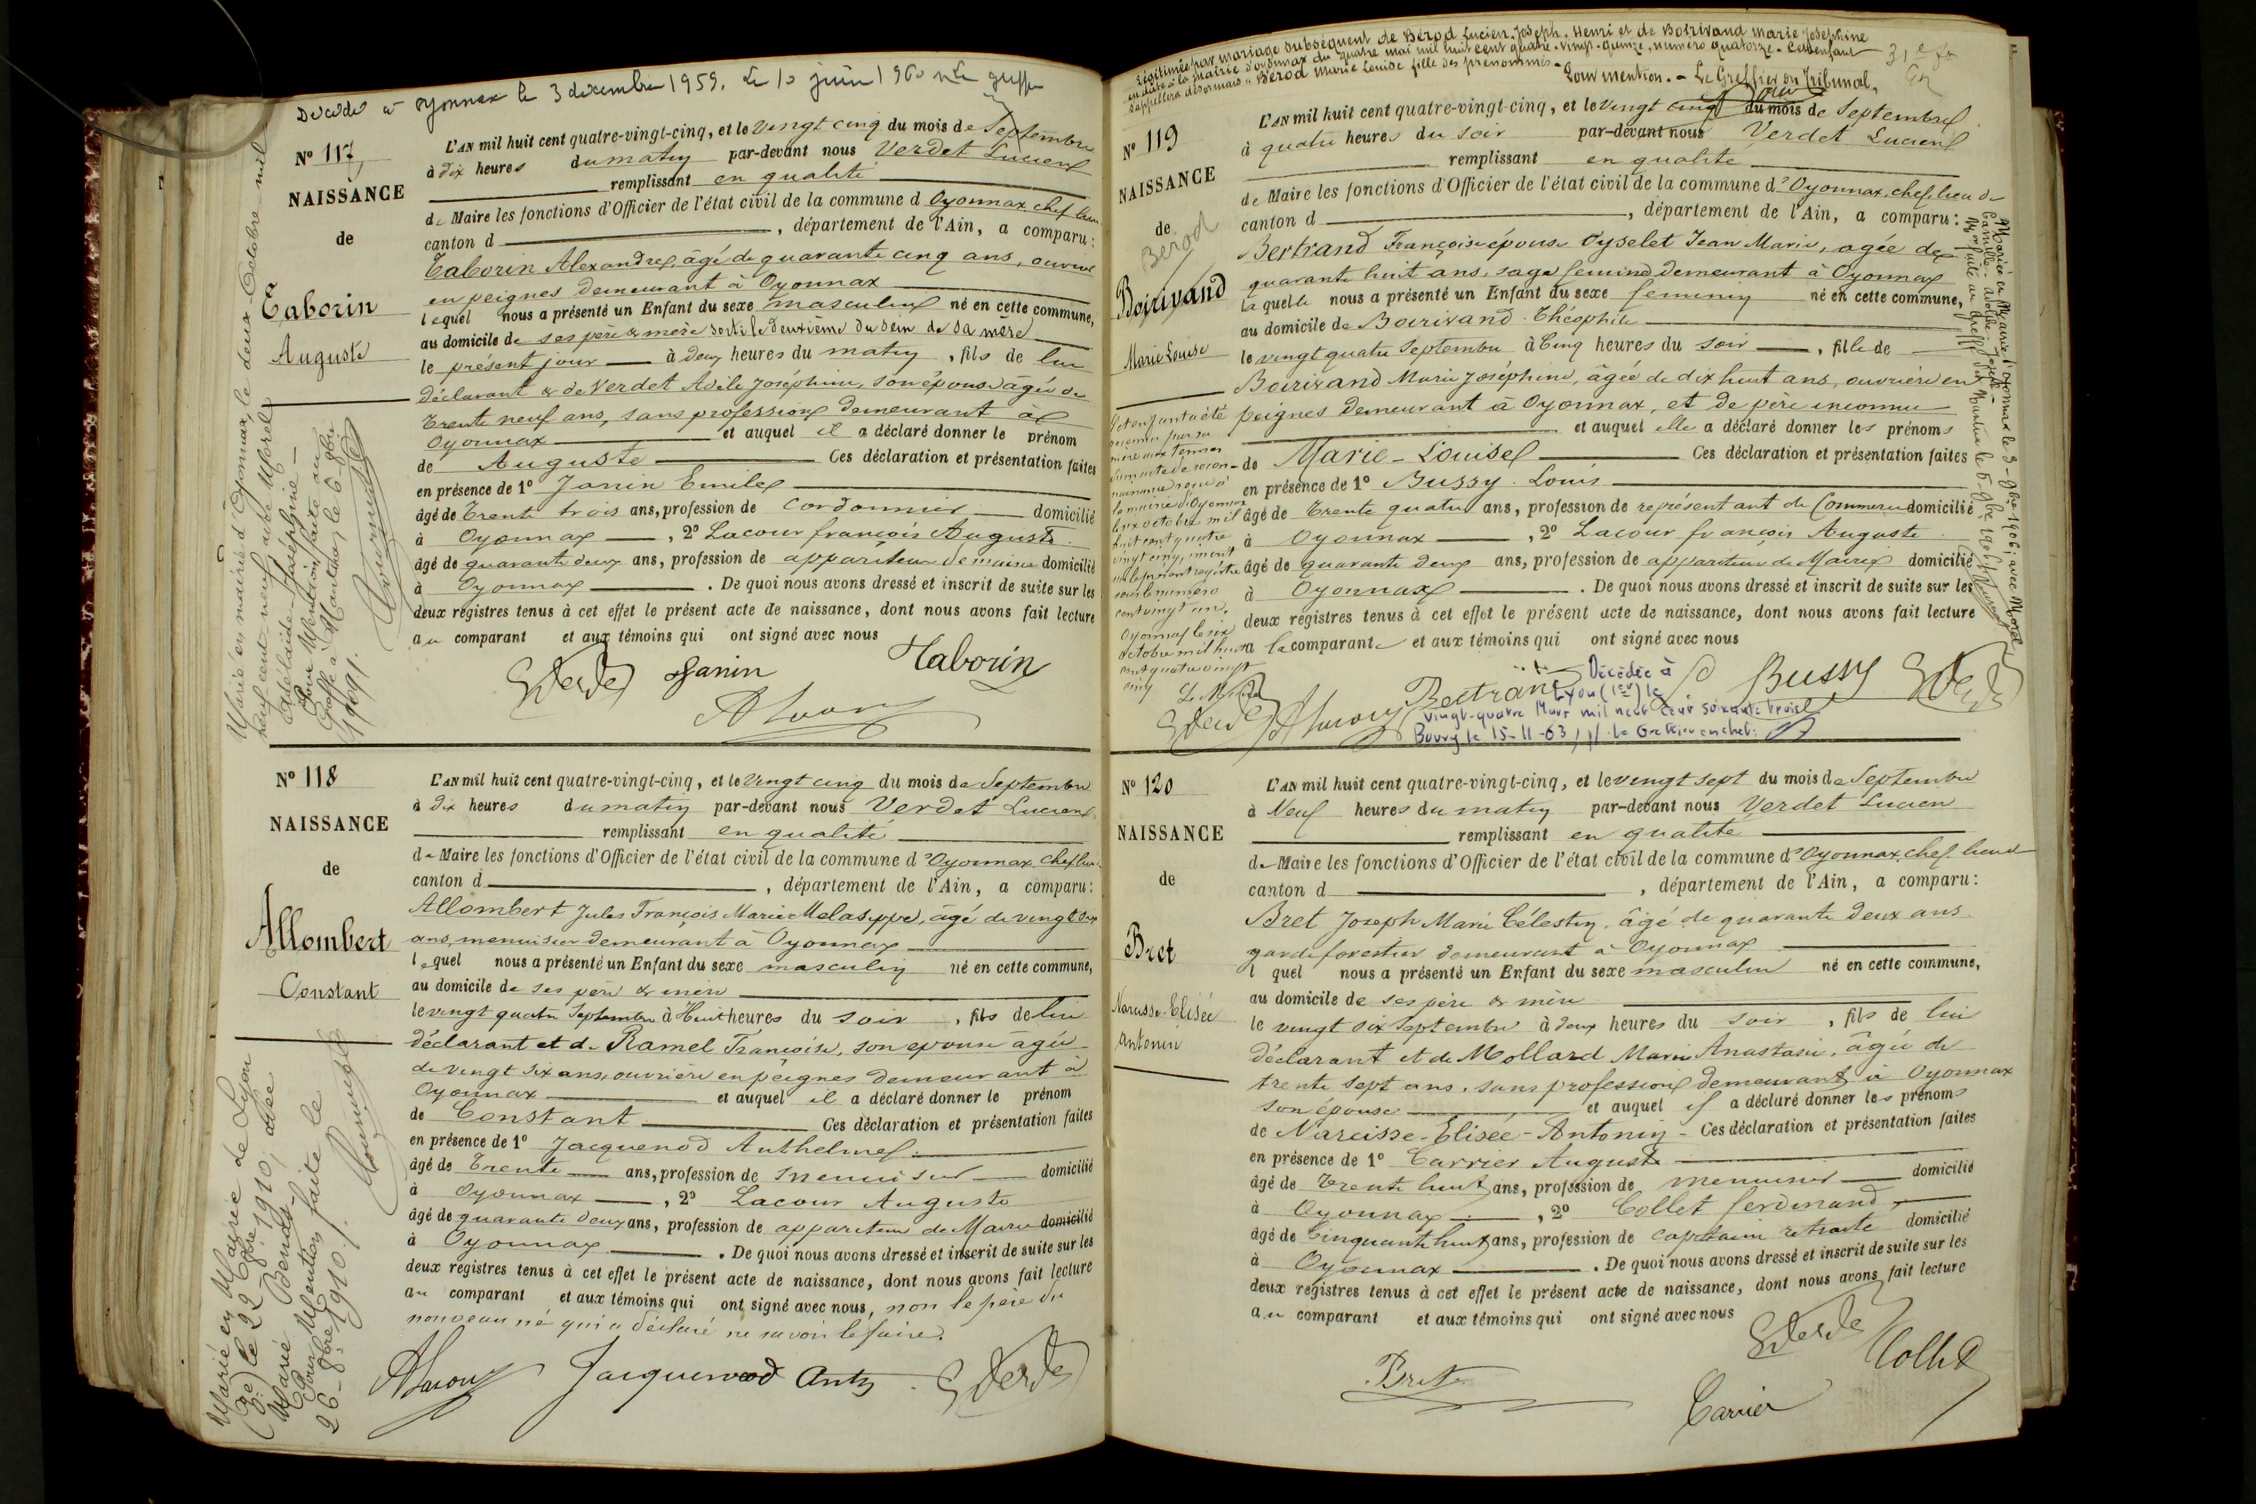 Décédé à Oyonnax le 3 décembre 1959. Le 10 juin 1960
N° 117
NAISSANCE
de
Taborin
Auguste
L'AN mil huit cent quatre-vingt-cinq, et le vingt cinq du mois de Septembre
à dix heures du matin par-devant nous Verdet Lucien
remplissant en qualité
de Maire les fonctions d'Officier de l'état civil de la commune d Oyonnax chef lieu
canton d , département de l'Ain, a comparu:
Taborin Alexandre, âgé de quarante cinq ans, ouvrier
en peignes demeurant à Oyonnax
lequel nous a présenté un Enfant du sexe masculin né en cette commune,
au domicile de ses père & mère sorti le deuxième du sein de sa mère
le présent jour à deux heures du matin, fils de lui
déclarant & de Verdet Adèle Joséphine, son épouse âgée de
trente neuf ans, sans profession demeurant à
Oyonnax et auquel il a déclaré donner le prénom
de Auguste Ces déclaration et présentation faites
en présence de 1° Janin Emile
âgé de trente trois ans, profession de cordonnier domicilié
à Oyonnax, 2° Lacour françois Auguste
âgé de quarante deux ans, profession de appariteur de mairie domicilié
à Oyonnax. De quoi nous avons dressé et inscrit de suite sur les
deux registres tenus à cet effet le présent acte de naissance, dont nous avons fait lecture
au comparant et aux témoins qui ont signé avec nous
Janin Taborin
Marié en mairie d'Oyonnax, le deux Octobre mil
neuf cent neuf avec Morel
Adélaïde Joséphine
Pour Mention faite au
Greffe à Nantua, le 6 8bre
1909.
N° 118
NAISSANCE
de
Allombert
Constant
L'AN mil huit cent quatre-vingt-cinq, et le vingt cinq du mois de Septembre
à dix heures du matin par-devant nous Verdet Lucien
remplissant en qualité
de Maire les fonctions d'Officier de l'état civil de la commune d'Oyonnax chef lieu
canton d , département de l'Ain, a comparu:
Allombert Jules François Marie, âgé de vingt
ans, menuisier demeurant à Oyonnax
lequel nous a présenté un Enfant du sexe masculin né en cette commune,
au domicile de ses père & mère
le vingt quatre Septembre à Huit heures du soir, fils de lui
déclarant et de Ramel Françoise, son épouse âgée
de vingt six ans, ouvrière en peignes demeurant à
Oyonnax et auquel il a déclaré donner le prénom
de Constant Ces déclaration et présentation faites
en présence de 1° Jacquenod Anthelme
âgé de trente ans, profession de menuisier domicilié
à Oyonnax, 2° Lacour Auguste
âgé de quarante deux ans, profession de appariteur de Mairie domicilié
à Oyonnax. De quoi nous avons dressé et inscrit de suite sur les
deux registres tenus à cet effet le présent acte de naissance, dont nous avons fait lecture
au comparant et aux témoins qui ont signé avec nous, non le père du
nouveau né qui a déclaré ne savoir le faire.
Jacquenod Anth
Marié en Mairie de Lyon
(3e) le 22 8bre 1910, avec
Marie Benda
Pour Mention faite le
26 8bre 1910.
légitimée par mariage subséquent de Bérod Lucien, Joseph, Henri et de Boirivand Marie Joséphine
en date à la mairie d'Oyonnax du quatre mai mil huit cent quatre-vingt-quinze, numéro quatorze. L'enfant
s'appellera désormais "Bérod Marie Louise fille des prénommés.
Pour mention. - Le Greffier du Tribunal,
N° 119
NAISSANCE
de
Bérod
Boirivand
Marie Louise
L'AN mil huit cent quatre-vingt-cinq, et le vingt cinq du mois de Septembre
à quatre heures du soir par-devant nous Verdet Lucien
remplissant en qualité
de Maire les fonctions d'Officier de l'état civil de la commune d'Oyonnax, chef lieu de
canton d , département de l'Ain, a comparu:
Bertrand Françoise épouse Oyselet Jean Marie, agée de
quarante huit ans, sage femme demeurant à Oyonnax
laquelle nous a présenté un Enfant du sexe feminin né en cette commune,
au domicile de Boirivand Théophile
le vingt quatre Septembre à Cinq heures du soir, fille de
Boirivand Marie Joséphine, âgée de dix huit ans, ouvrière en
peignes demeurant à Oyonnax, et de père inconnu
et auquel elle a déclaré donner les prénoms
de Marie-Louise Ces déclaration et présentation faites
en présence de 1° Bussy Louis
âgé de trente quatre ans, profession de représentant de Commerce domicilié
à Oyonnax, 2° Lacour françois Auguste
âgé de quarante deux ans, profession de appariteur de Mairie domicilié
à Oyonnax. De quoi nous avons dressé et inscrit de suite sur les
deux registres tenus à cet effet le présent acte de naissance, dont nous avons fait lecture
a la comparante et aux témoins qui ont signé avec nous
Bertrand Bussy
Décédée à
Lyon (1er) le
vingt-quatre Mars mil neuf cent soixante trois
Bourg le 15-11-63 le Greffier en chef:
Cet enfant a été
reconnu par sa
mère aux termes
d'un acte de recon-
naissance reçu à
la mairie d'Oyonnax
le six octobre mil
huit cent quatre
vingt cinq, inscrit
sur le présent registre
sous le numéro
cent vingt un.
Oyonnax le six
octobre mil huit
cent quatre vingt
cinq
Le Maire
Mariée en Mairie d'Oyonnax le 3-9bre 1906, avec Morel
Camille-Adolphe-Joseph-
Mon faite au Greffe de Nantua le 5-9bre 1906
N° 120
NAISSANCE
de
Bret
Narcisse-Elisée
Antonin
L'AN mil huit cent quatre-vingt-cinq, et le vingt sept du mois de Septembre
à Neuf heures du matin par-devant nous Verdet Lucien
remplissant en qualité
de Maire les fonctions d'Officier de l'état civil de la commune d'Oyonnax, chef lieu de
canton d , département de l'Ain, a comparu:
Bret Joseph Marie Célestin, âgé de quarante deux ans
garde forestier demeurant à Oyonnax
l quel nous a présenté un Enfant du sexe masculin né en cette commune,
au domicile de ses père & mère
le vingt six Septembre à deux heures du soir, fils de lui
déclarant et de Mollard Marie Anastasie, âgée de
trente sept ans, sans profession demeurant à Oyonnax
son épouse et auquel il a déclaré donner les prénoms
de Narcisse-Elisée-Antonin - Ces déclaration et présentation faites
en présence de 1° Carrier Auguste
âgé de trente huit ans, profession de menuisier domicilié
à Oyonnax, 2° Collet ferdinand
âgé de Cinquante huit ans, profession de capitaine retraité domicilié
à Oyonnax. De quoi nous avons dressé et inscrit de suite sur les
deux registres tenus à cet effet le présent acte de naissance, dont nous avons fait lecture
au comparant et aux témoins qui ont signé avec nous
Bret Collet
Carrier